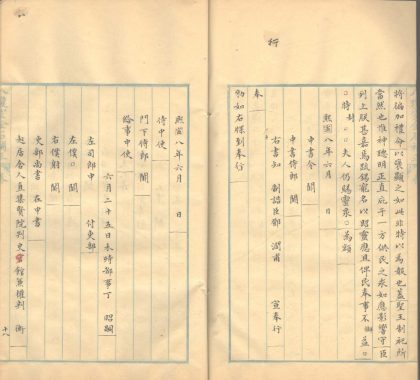 將徧加禮命以褒顯之如此非特以為報也蓋聖王制祀所
當然也惟神聰明正直庇于一方供民之求如應影響守臣
列上朕甚嘉焉疏錫寵名以昭靈應且俾民奉事不懈益○
時封○○夫人仍賜靈衆○為額
熙寧八年六月 日
中書令 闕
中書侍郎 闕
右書知 制誥臣鄧 潤甫 宣奉行
奉
勑如右牒到奉行
熙寧八年六月 日
侍中使
門下侍郎 闕
給事中使
六月二十五日未時都事丁 昭嗣
左司郎中 付吏部
左僕○ 闕
右僕射 闕
吏部尚書 在中書
起居舍人直集賢院判史館兼權判 衡
十八